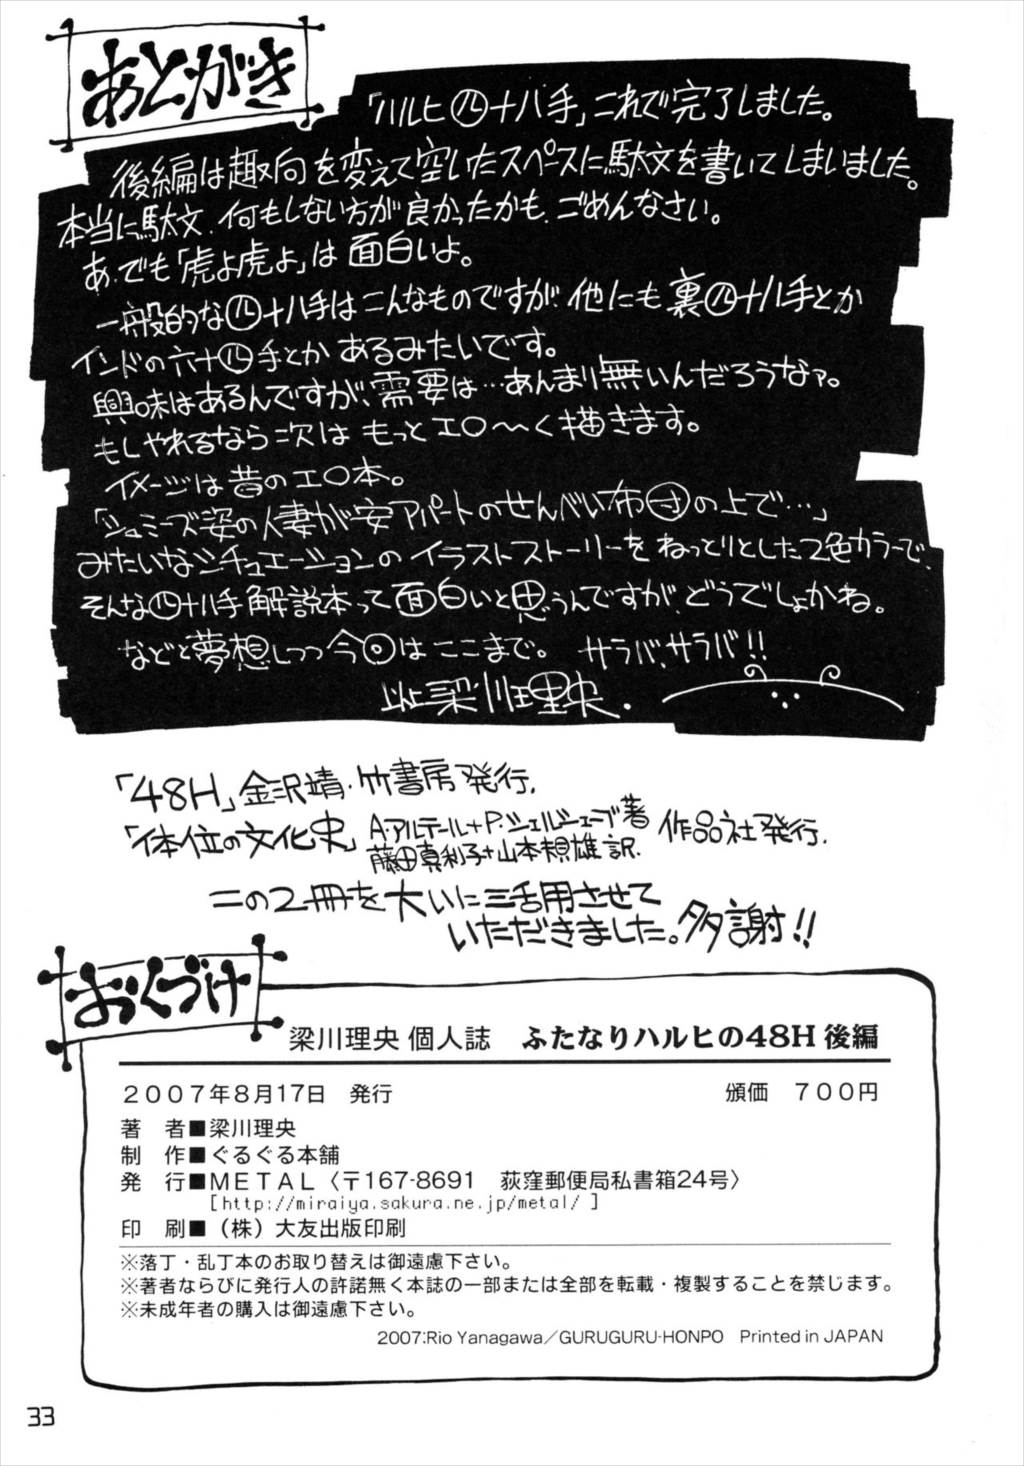 あとがき
「ハルヒ㊃十八手」これで完了しました。
後編は趣向を変えて空いたスペースに駄文を書いてしまいました。
本当に駄文、何もしない方が良かったかも、ごめんなさい。
あ、でも「虎よ虎よ」は面白いよ。
一般的な㊃十八手はこんなものですが、他にも裏㊃十八手とか
インドの六十㊃手とかあるみたいです。
興味はあるんですが、需要は…あんまり無いんだろうなァ。
もしやれるなら次はもっとエロ～く描きます。
イメージは昔のエロ本。
「シュミーズ姿の人妻が安アパートのせんべい布団の上で…」
みたいなシチュエーションのイラストストーリーをねっとりとした2色カラーで、
そんな㊃十八手解説本って面白いと思うんですが、どうでしょかね。
などと夢想しつつ今回はここまで。 サラバ、サラバ!!
以上梁川理央.
「48H」金沢靖・竹書房発行.
「体位の文化史」A・アルテール+P・シェルシェーブ著
藤田真利子+山本規雄訳. 作品社発行.
この2冊を大いに活用させて
いただきました。多謝!!
おくづけ
梁川理央 個人誌 ふたなりハルヒの48H 後編
2007年8月17日 発行 頒価 700円
著 者■梁川理央
制 作■ぐるぐる本舗
発 行■METAL〈〒167-8691 荻窪郵便局私書箱24号〉
[http://miraiya.sakura.ne.jp/metal/ ]
印 刷■（株）大友出版印刷
※落丁・乱丁本のお取り替えは御遠慮下さい。
※著者ならびに発行人の許諾無く本誌の一部または全部を転載・複製することを禁じます。
※未成年者の購入は御遠慮下さい。
2007:Rio Yanagawa／GURUGURU-HONPO Printed in JAPAN
33